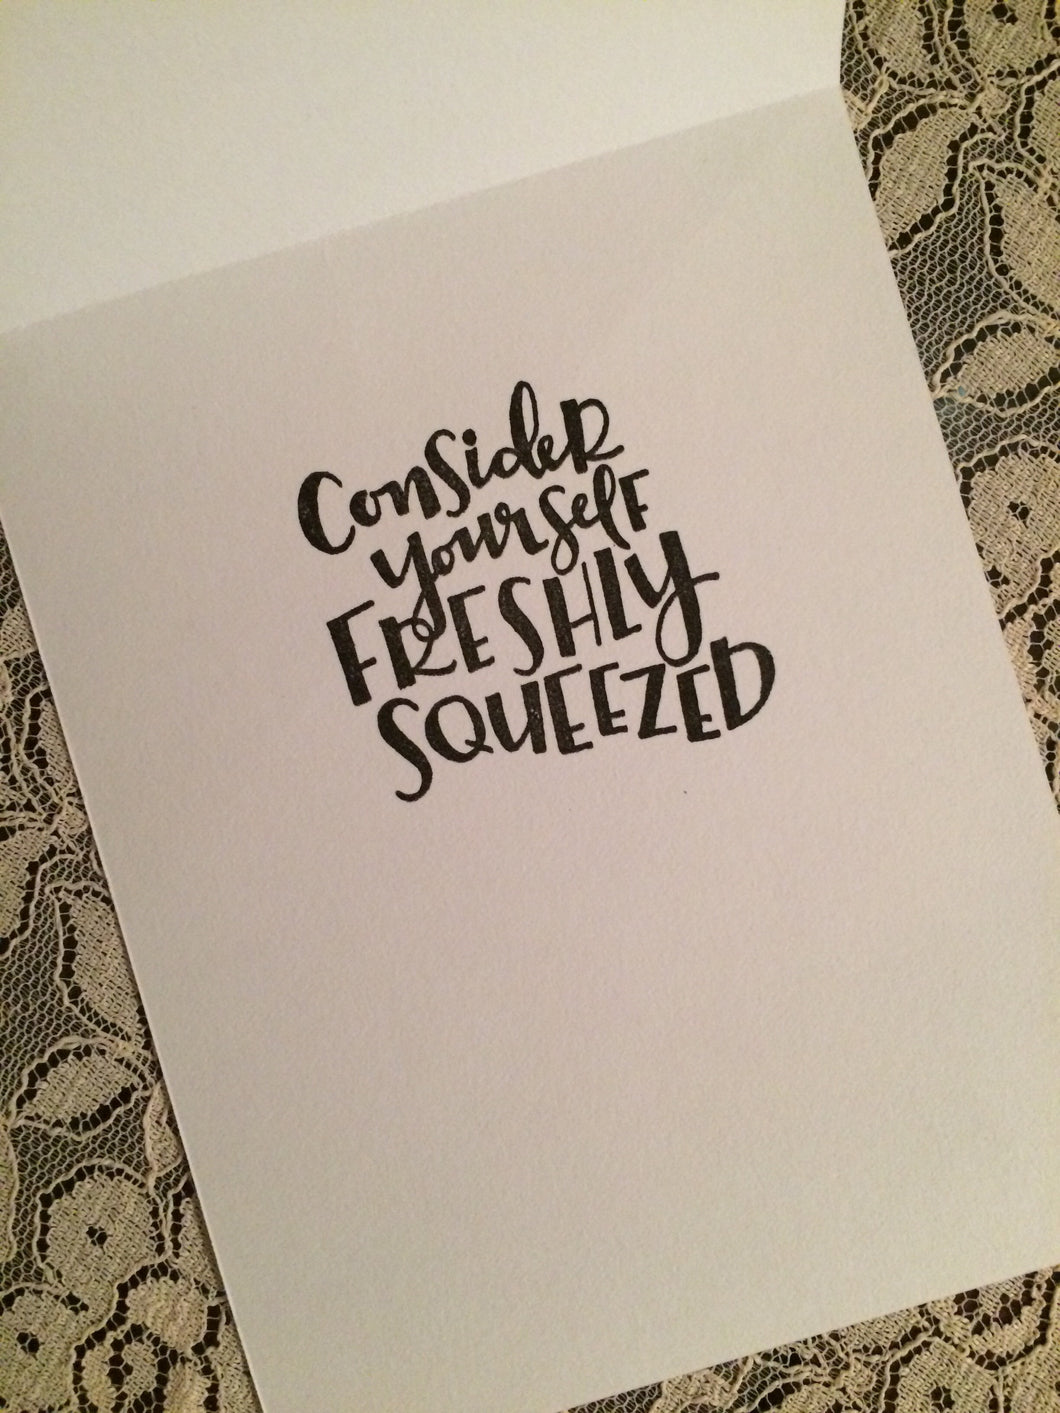 Consider
yourself
FRESHLy
SQUEEZED